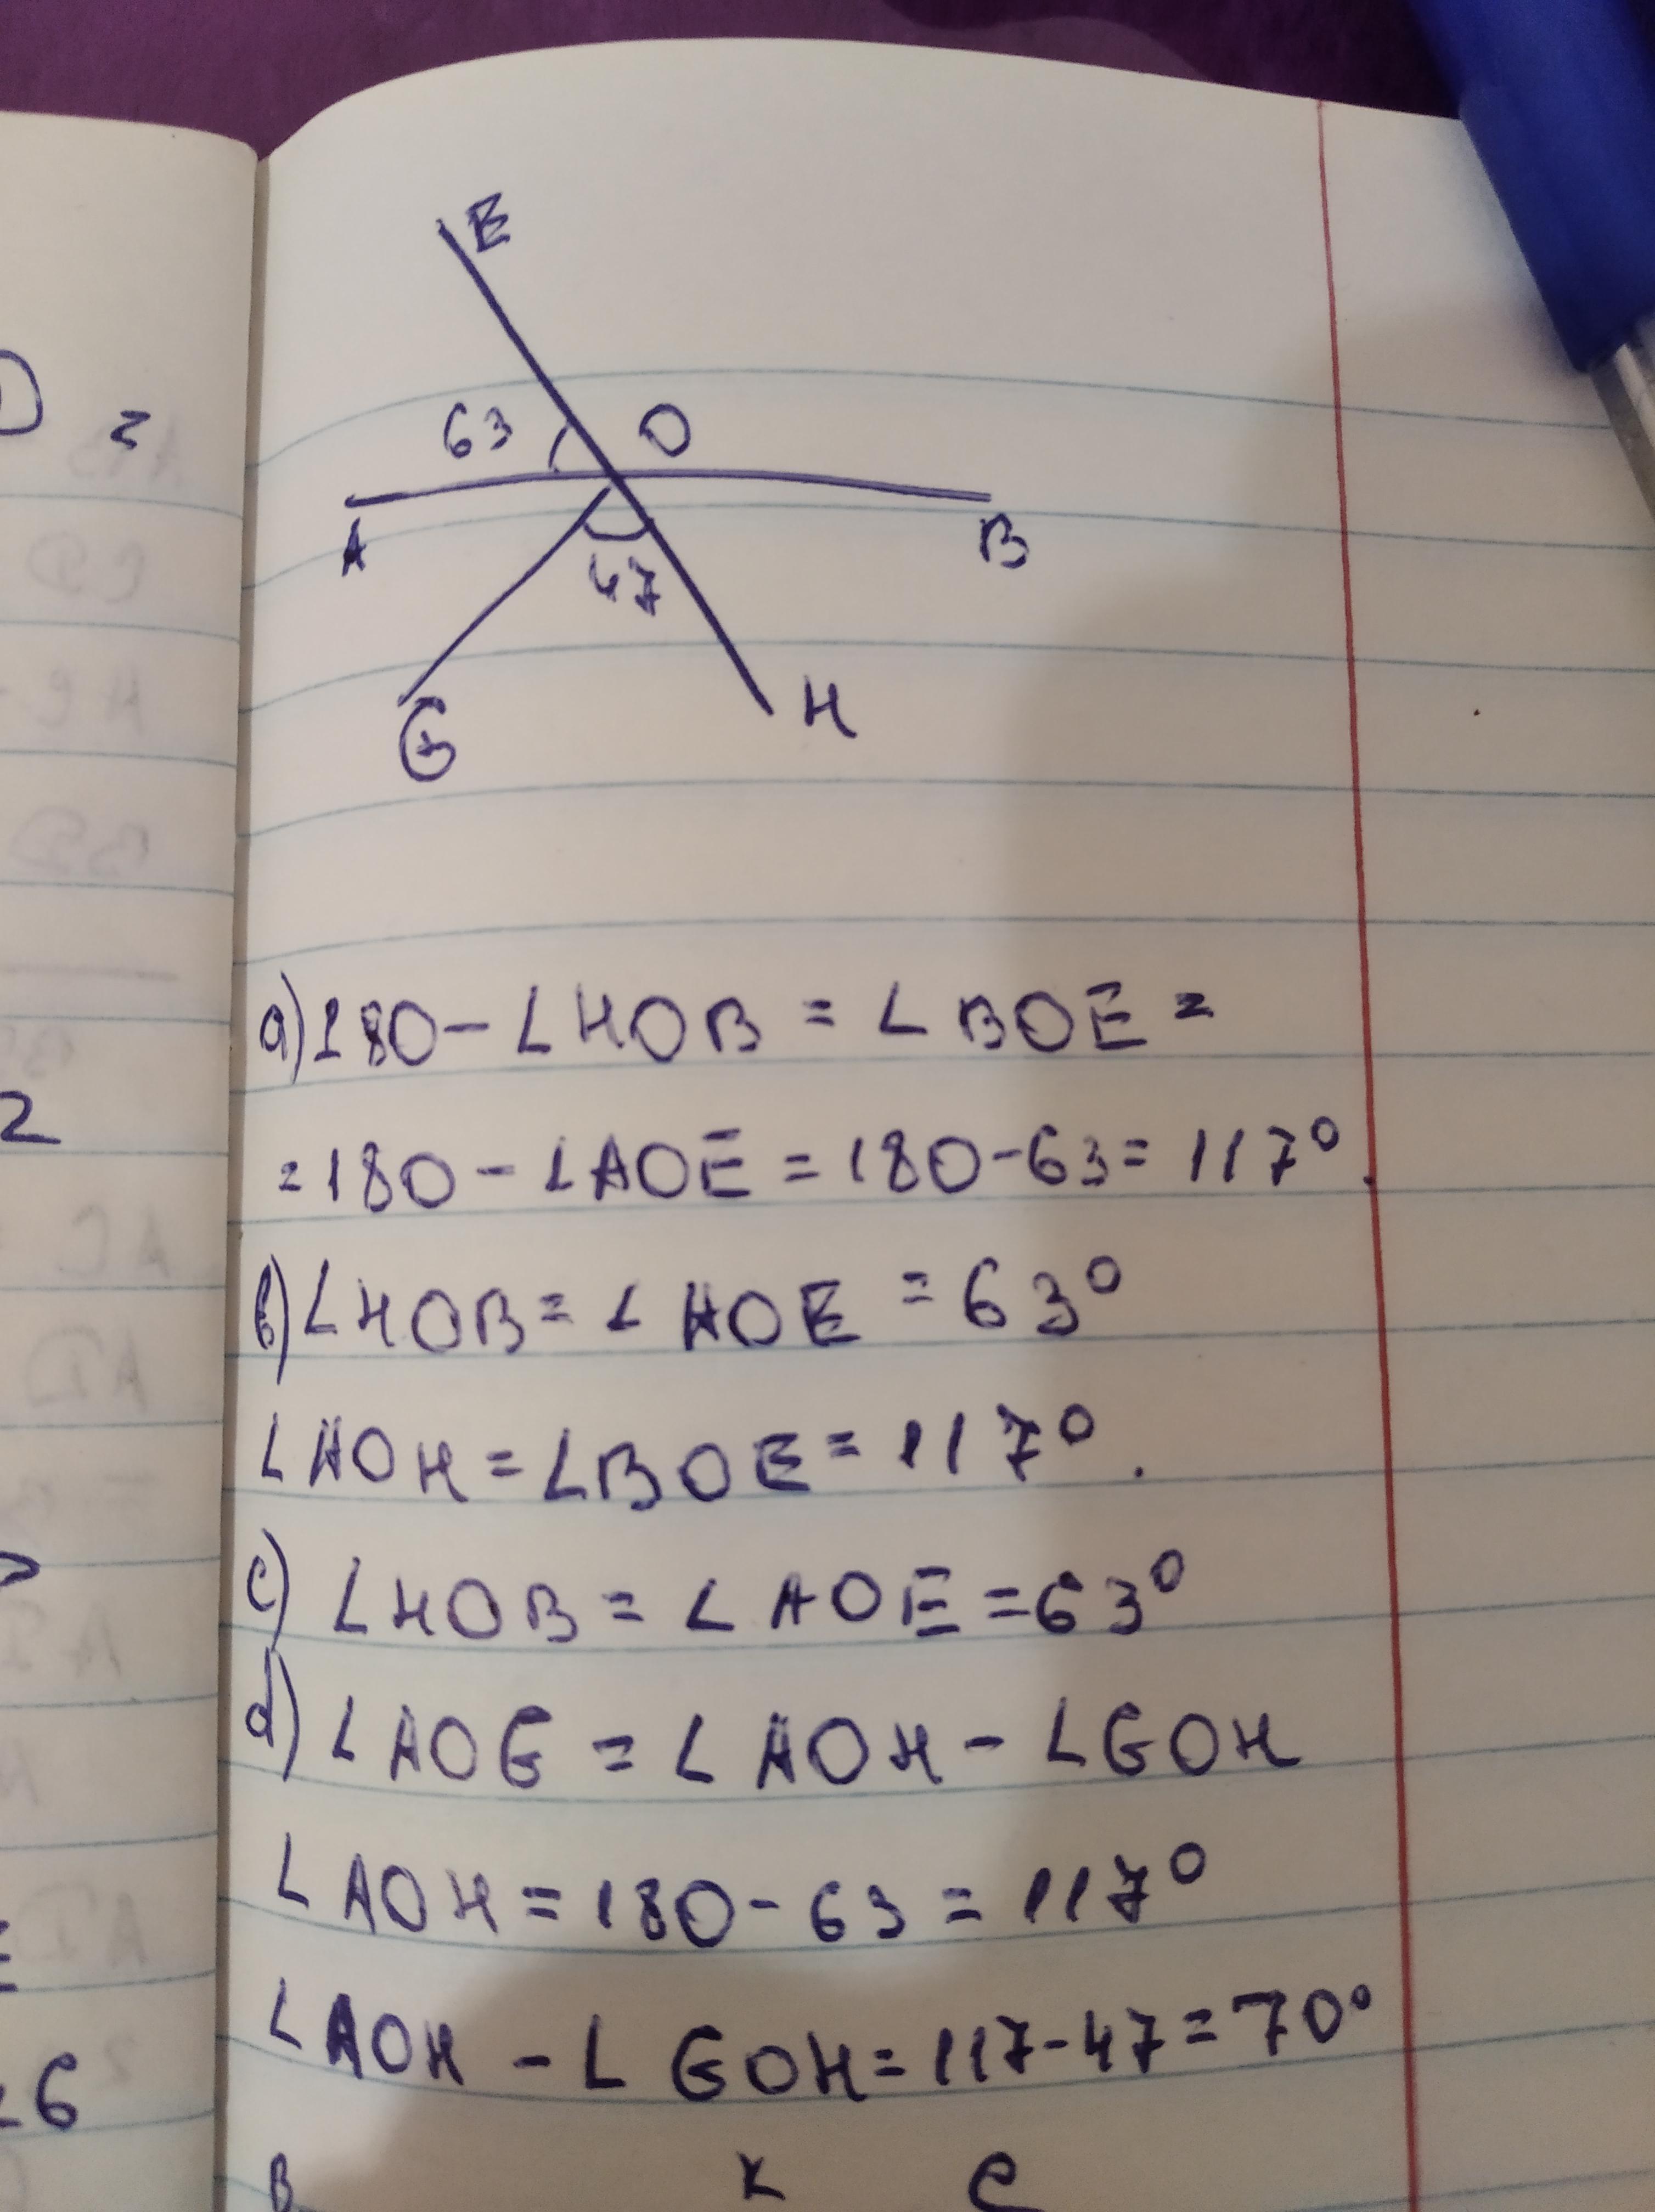 E
63
O
A
B
47
G
H
a) 180 - ∠HOB = ∠BOE =
= 180 - ∠AOE = 180 - 63 = 117°.
b) ∠HOB = ∠AOE = 63°
∠AOH = ∠BOE = 117°.
c) ∠HOB = ∠AOE = 63°
d) ∠AOG = ∠AOH - ∠GOH
∠AOH = 180 - 63 = 117°
∠AOH - ∠GOH = 117 - 47 = 70°
B K C